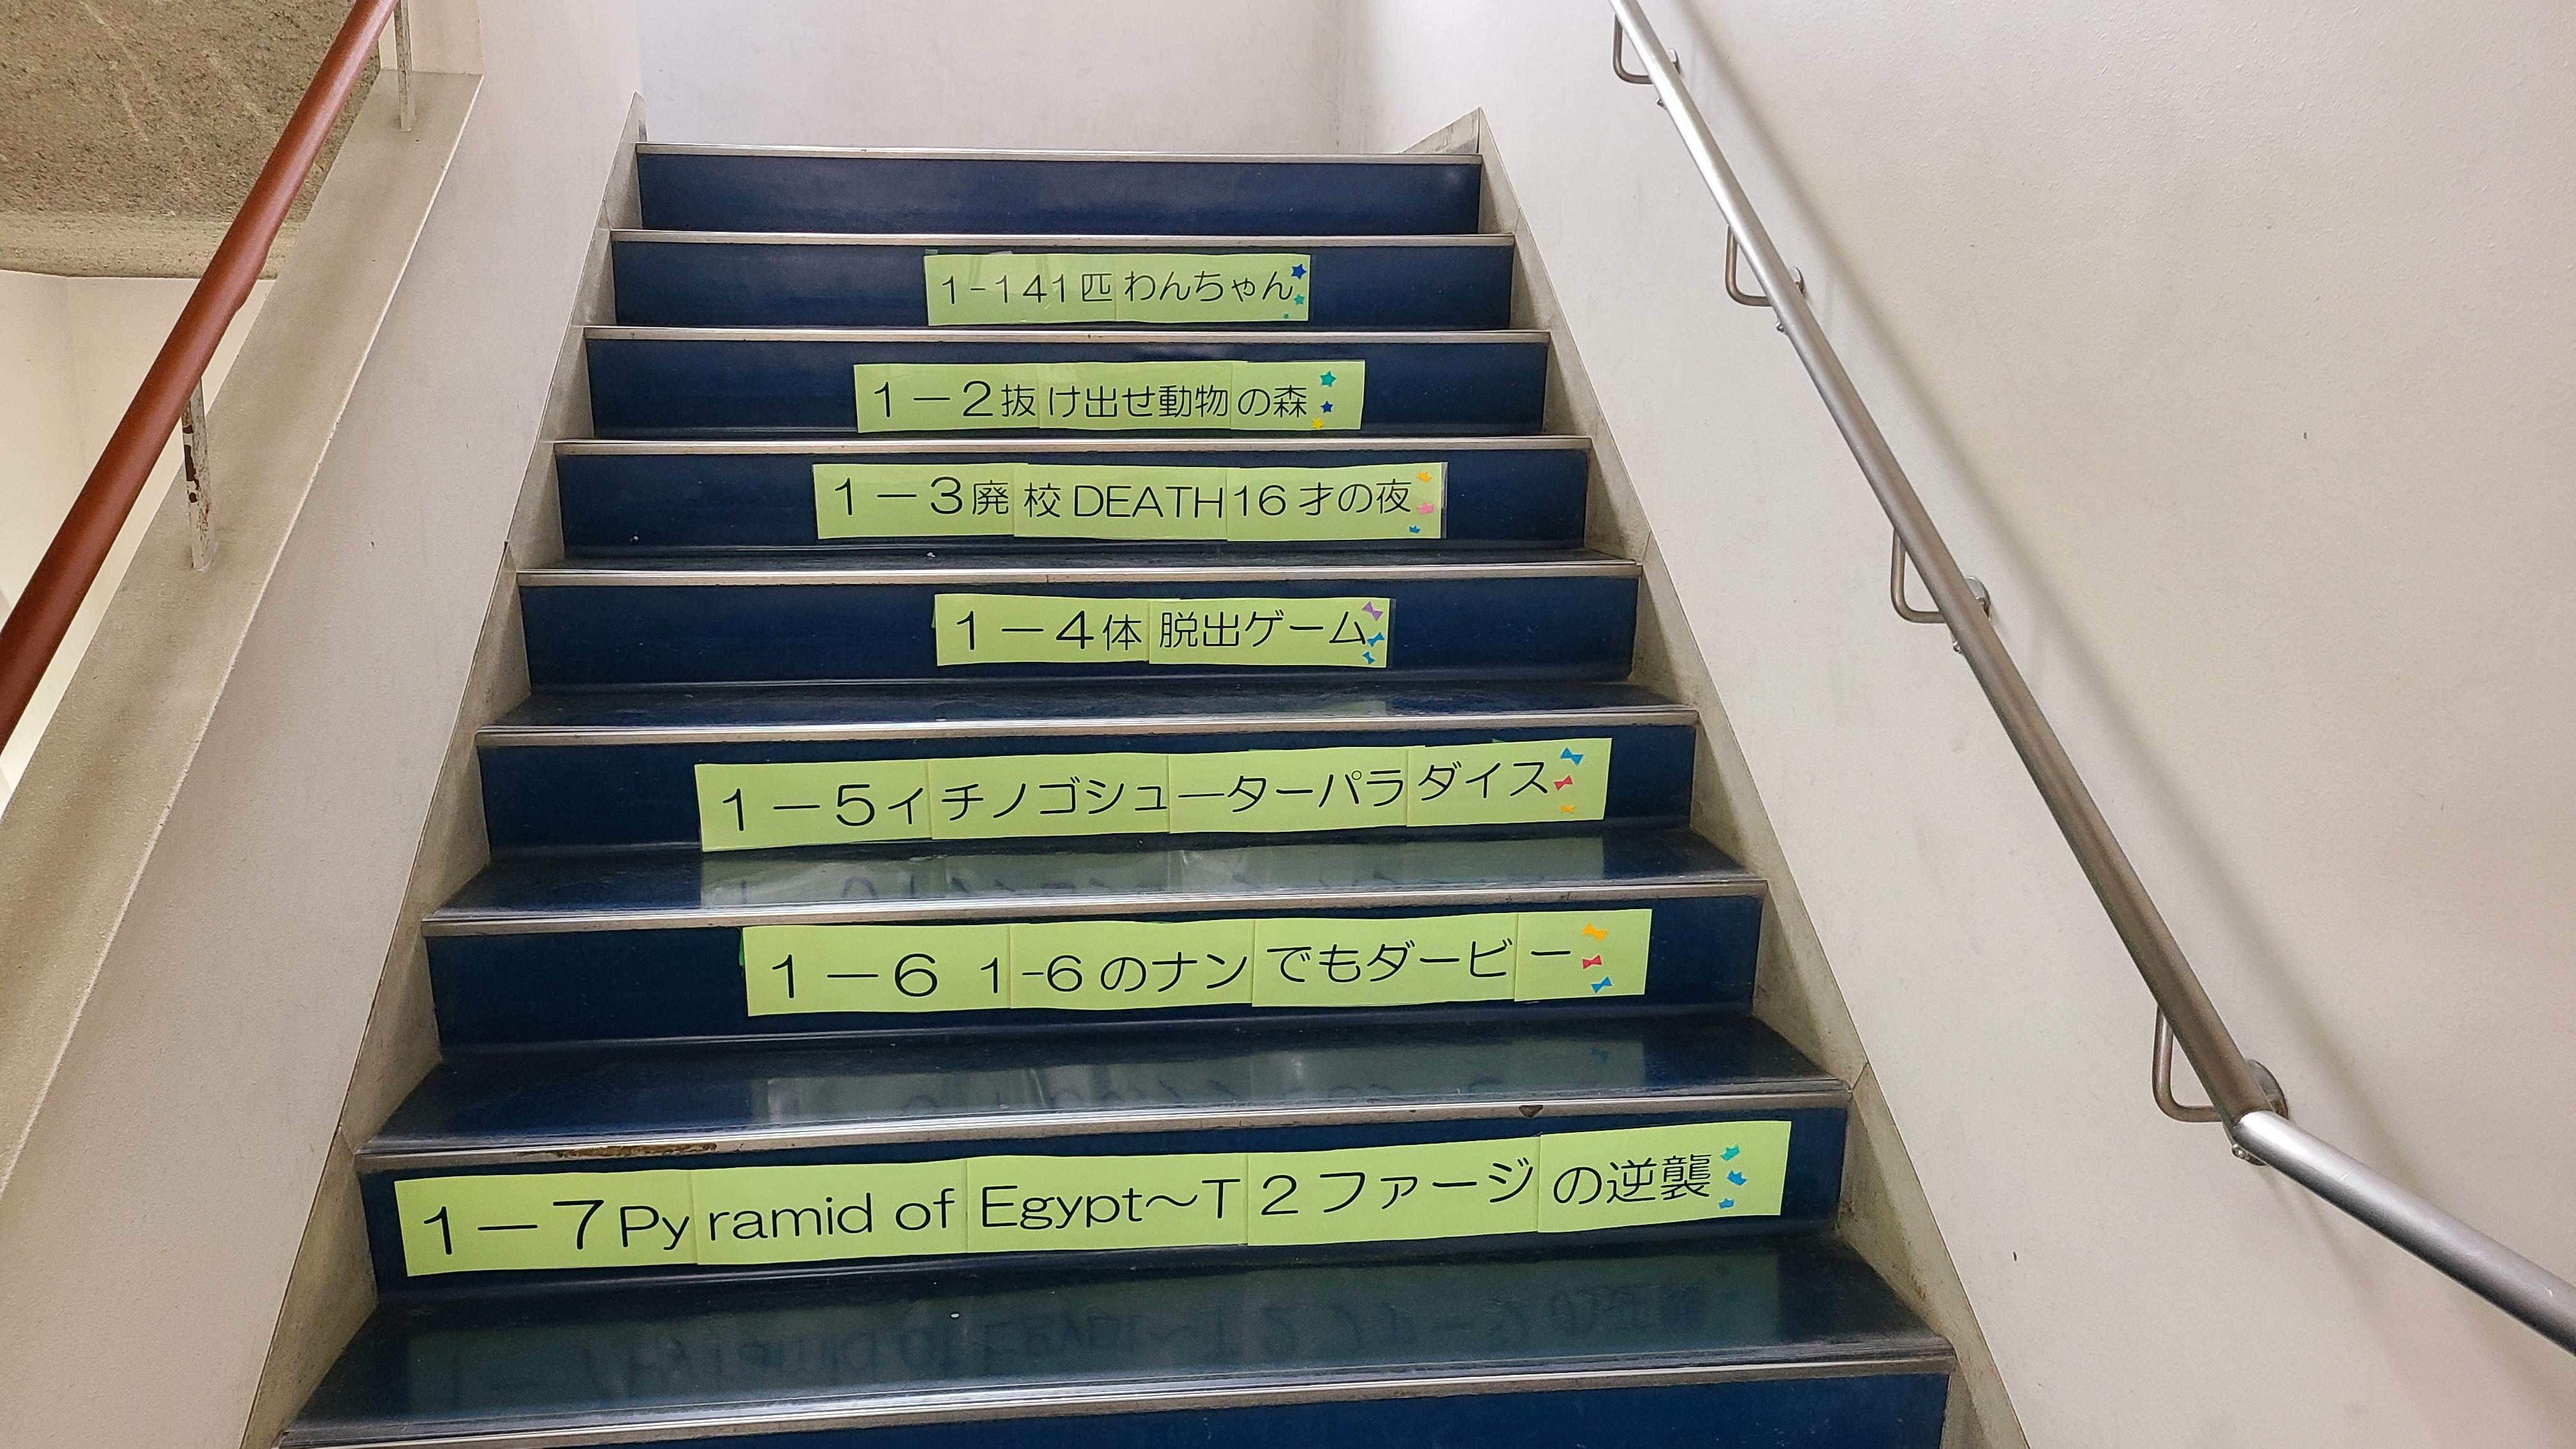 1-141匹わんちゃん
1－2抜け出せ動物の森
1－3廃校DEATH16才の夜
1－4体脱出ゲーム
1－5イチノゴシューターパラダイス
1－6 1-6のナンでもダービー
1－7Pyramid of Egypt～T2ファージの逆襲